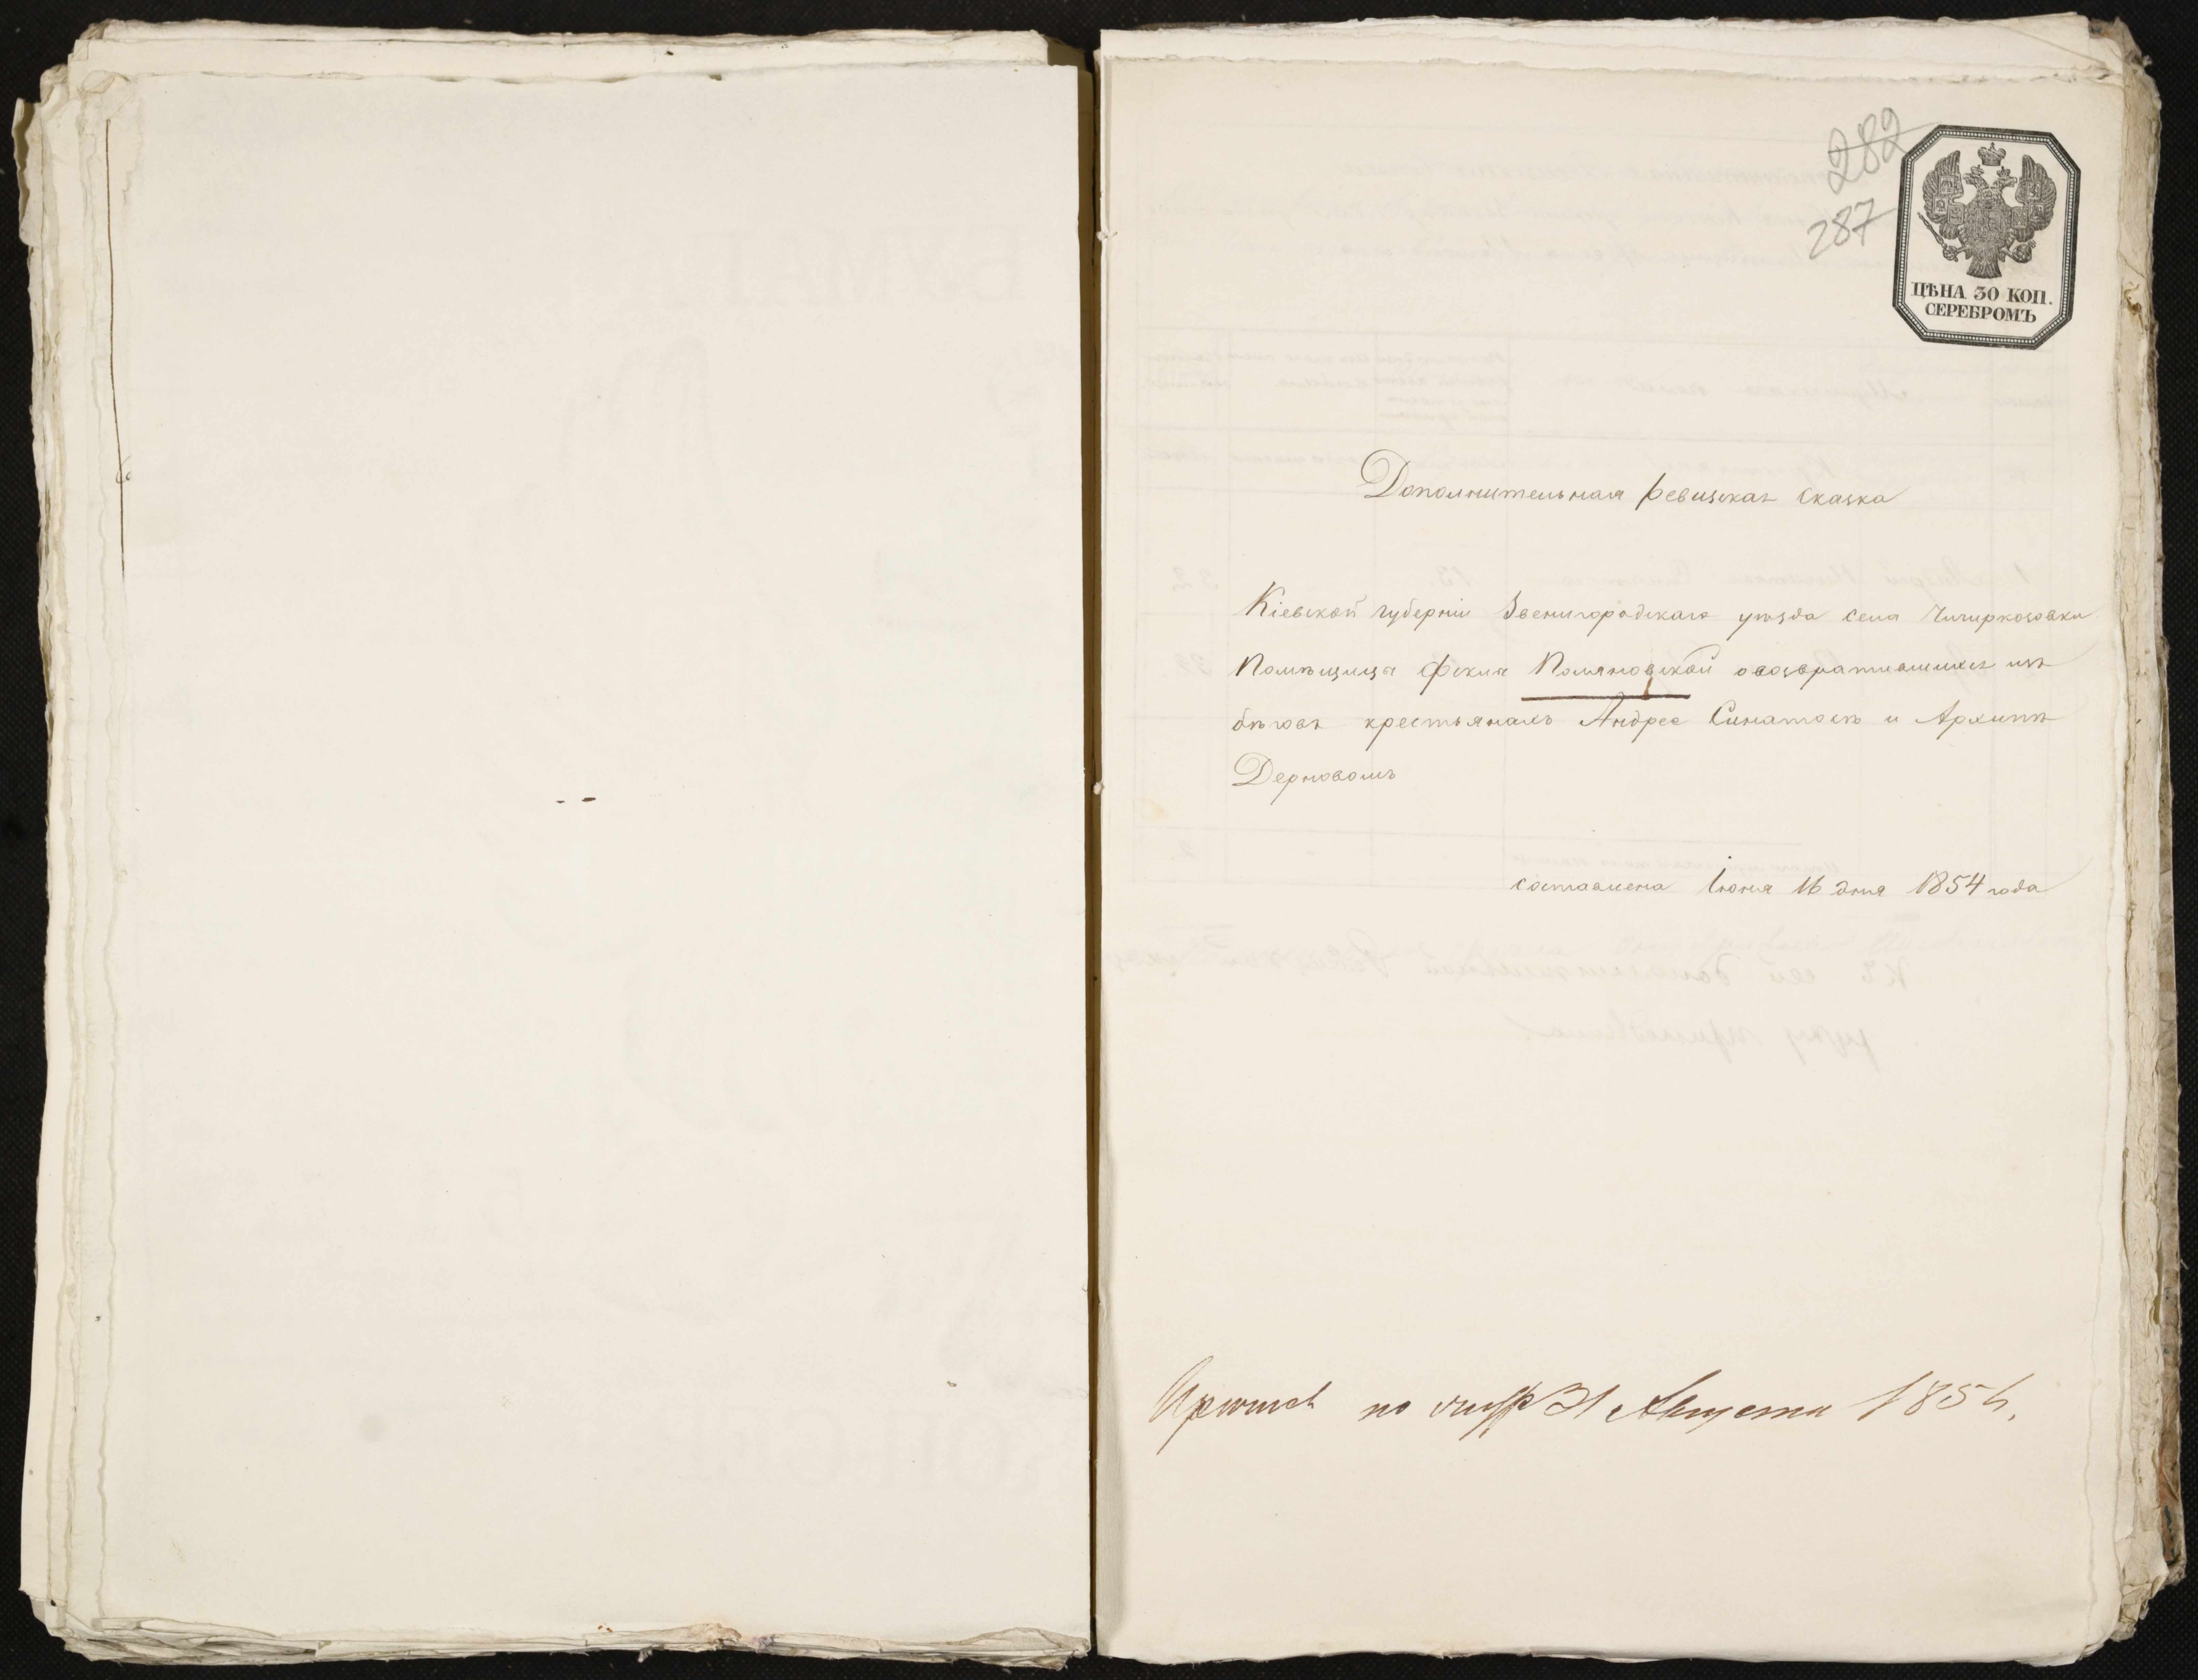 282
287
ЦѢНА 30 КОП.
СЕРЕБРОМЪ
Дополнительная ревизская сказка
Кіевской губерніи Звенигородскаго уѣзда села Чичиркозовки
Помѣщица Фекля Поляновской о возвратившихся изъ
бѣговъ крестьянахъ Андрее Синаток и Архипѣ
Дерновомъ
составлена Іюня 16 дня 1854 года
по 31 Августа 1854.